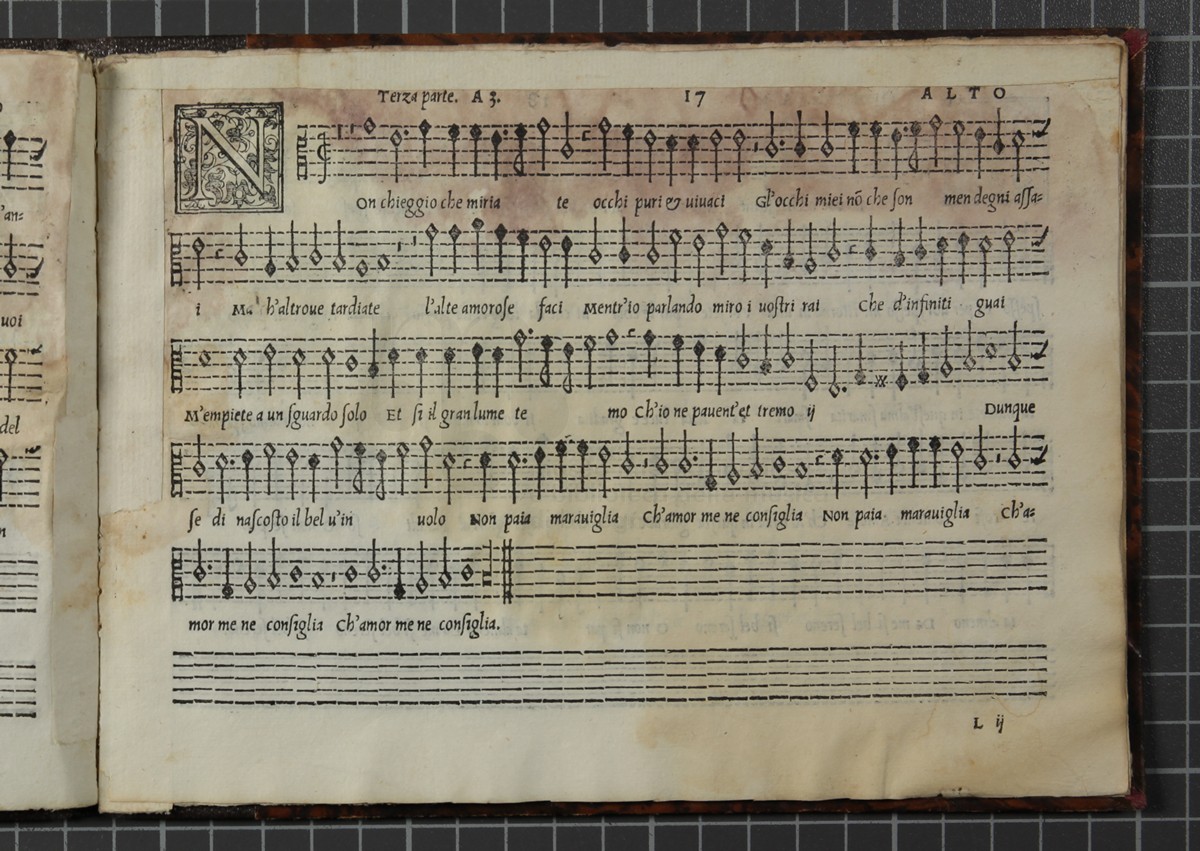 Terza parte. A 3. 17 ALTO
NOn chieggio che miria te occhi puri & uiuaci Gl'occhi miei nō che son men degni assa=
i Ma h'altroue tardiate l'alte amorose faci Mentr'io parlando miro i uostri rai Che d'infiniti guai
M'empiete a un sguardo solo Et si il gran lume te mo Ch'io ne pauent'et tremo ij Dunque
se di nascosto il bel u'in uolo Non paia marauiglia Ch'amor me ne consiglia Non paia marauiglia Ch'a=
mor me ne consiglia Ch'amor me ne consiglia.
L ij
'an=
uoi
del